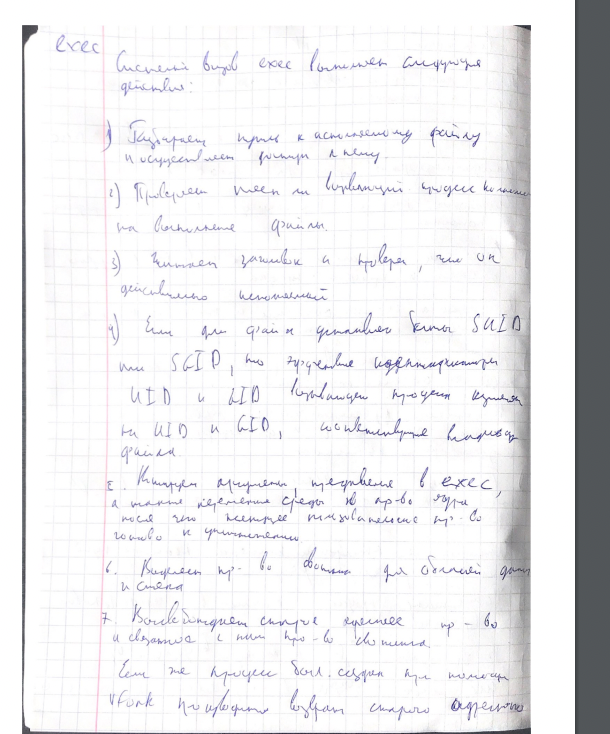 exec
Системный вызов exec выполняет следующие
действия:
1) Разбирает путь к исполняемому файлу
и осуществляет доступ к нему.
2) Проверяет имеет ли вызывающий процесс
на выполнение файла.
3) Читает заголовок и, что он
действительно исполняемый
4) Если для файла установлен биты SUID
или SGID, то эффективные идентификаторы
UID и GID вызывающего процесса
на UID и GID, соответствующие
файла
5. Копирует аргументы, в exec,
а также переменные среды в пр-во ядра
после чего текущее пользовательское пр-во
готово к уничтожению
6. Выделяет пр-во свопинга для областей
и стека
7. Высвобождает старое адресное пр-во
и связанное с ним пр-во свопинга
Если же процесс был создан при помощи
vfork производится возврат старого адресного